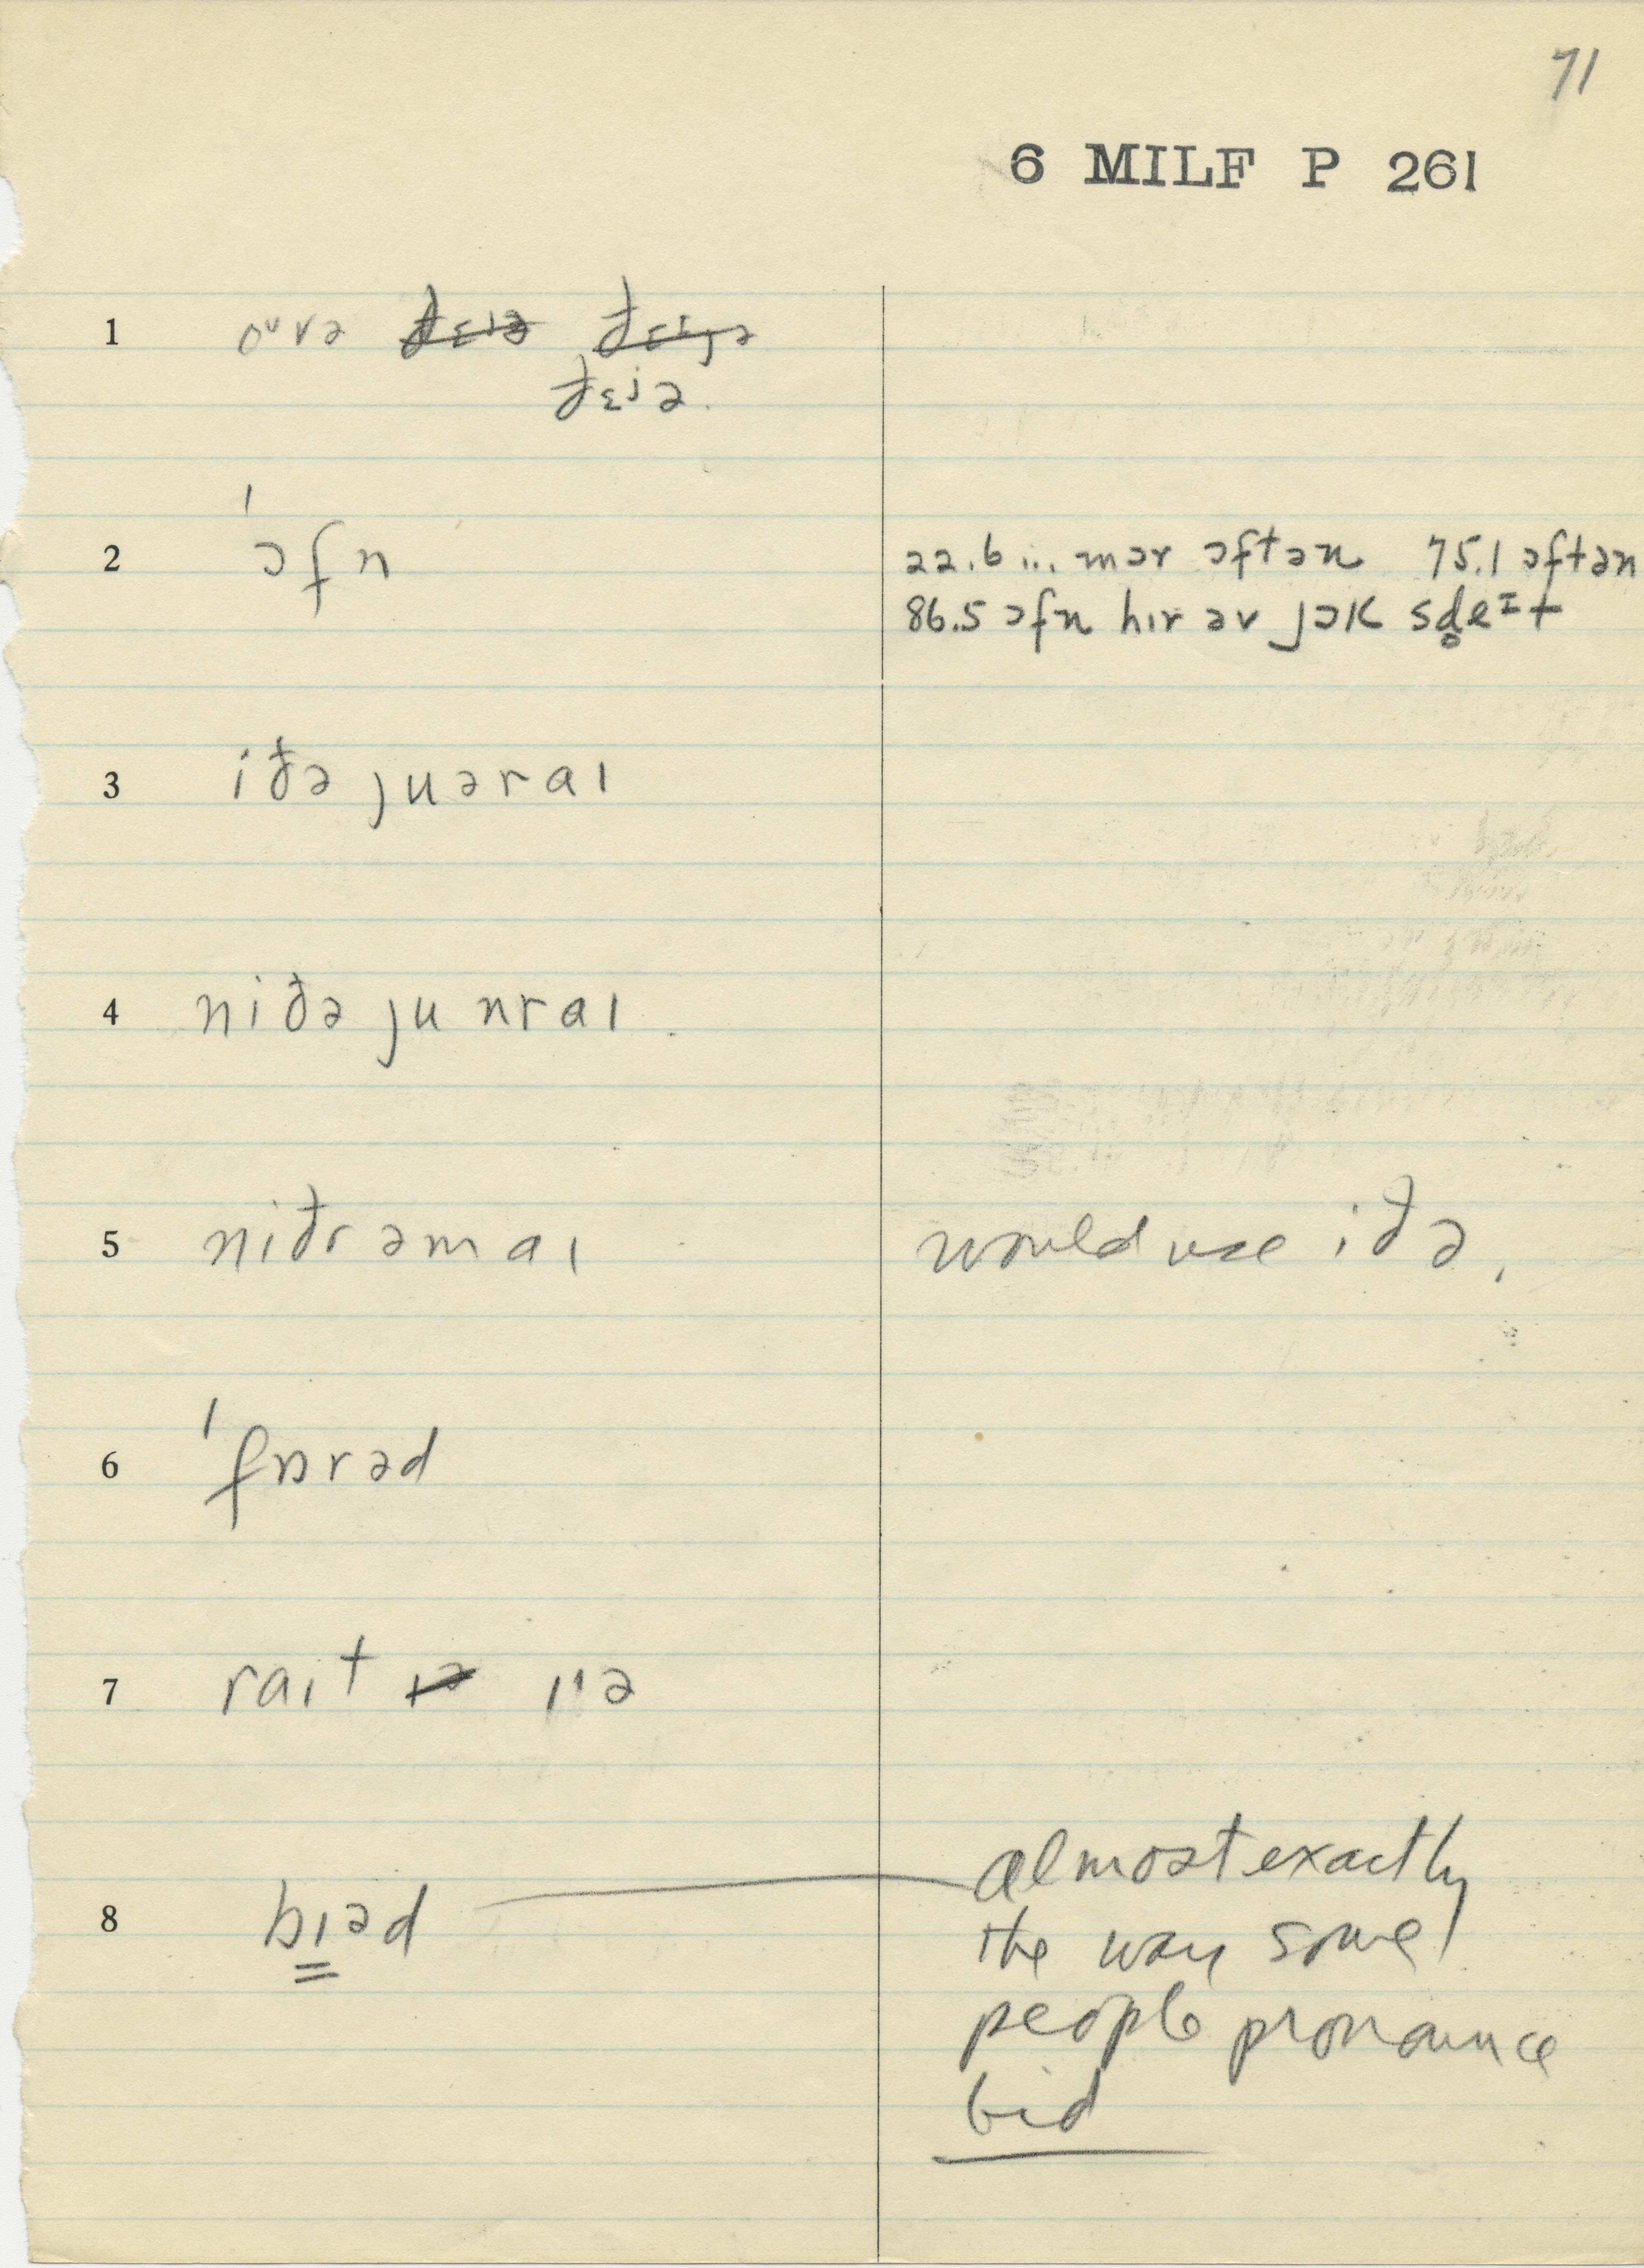 71
6 MILF P 261
1 oᵘvə ðɛiə ðɛⁱjə
ðɛⁱə.
2 ˈɔfn 22.6 ... mər ɔftən 75.1 ɔftən
86.5 ɔfn hɪr əv jɔk sd̥eᶦt
3 iðə juəraɪ
4 niðə ju nraɪ
5 niðr əm aɪ would use iðə.
6 ˈfɒrəd
7 raɪt ɪə ɪˈə
8 bɪəd almost exactly
the way some
people pronounce
bid